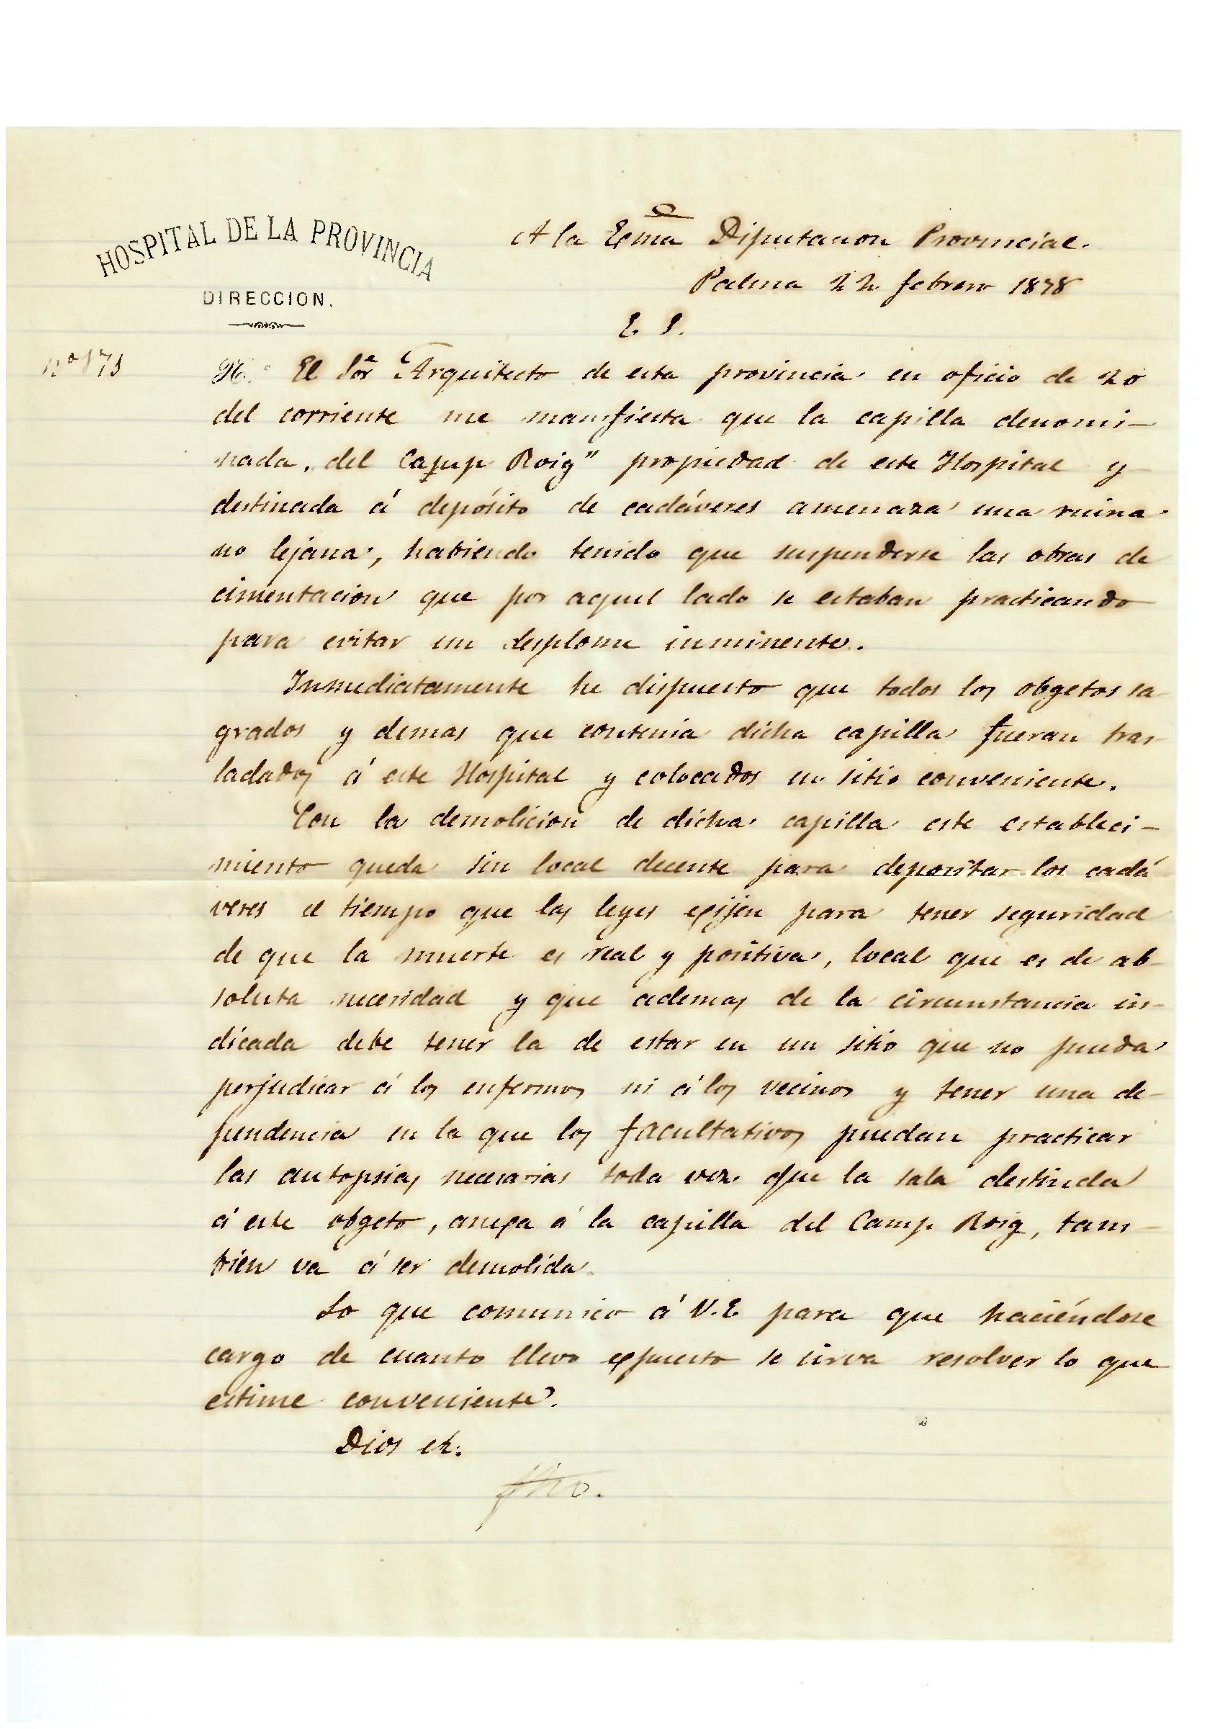 HOSPITAL DE LA PROVINCIA
DIRECCION.
A la Exma Diputacion Provincial.
Palma 22 febrero 1878
E. S.
nº 173
El Sor Arquitecto de esta provincia en oficio de 20
del corriente me manifiesta que la capilla denomi-
nada „del Camp Roig" propiedad de este Hospital y
destinada á depósito de cadáveres amenaza una ruina
no lejana, habiendo tenido que suspenderse las obras de
cimentacion que por aquel lado se estaban practicando
para evitar un desplome inminente.
Inmediatamente he dispuesto que todos los obgetos sa
grados y demas que contenia dicha capilla fueran tras
ladados á este Hospital y colocados en sitio conveniente.
Con la demolicion de dicha capilla este estableci-
miento queda sin local decente para depositar los cadá
veres el tiempo que las leyes exijen para tener seguridad
de que la muerte es real y positiva, local que es de ab-
soluta necesidad y que ademas de la circunstancia in-
dicada debe tener la de estar en un sitio que no pueda
perjudicar á los enfermos ni á los vecinos y tener una de-
pendencia en la que los facultativos puedan practicar
las autopsias necesarias toda vez que la sala destinada
á este obgeto, anexa á la capilla del Camp Roig, tam-
bien va á ser demolida.
Lo que comunico á V.E. para que haciéndose
cargo de cuanto llevo expuesto se sirva resolver lo que
estime conveniente.
Dios et.